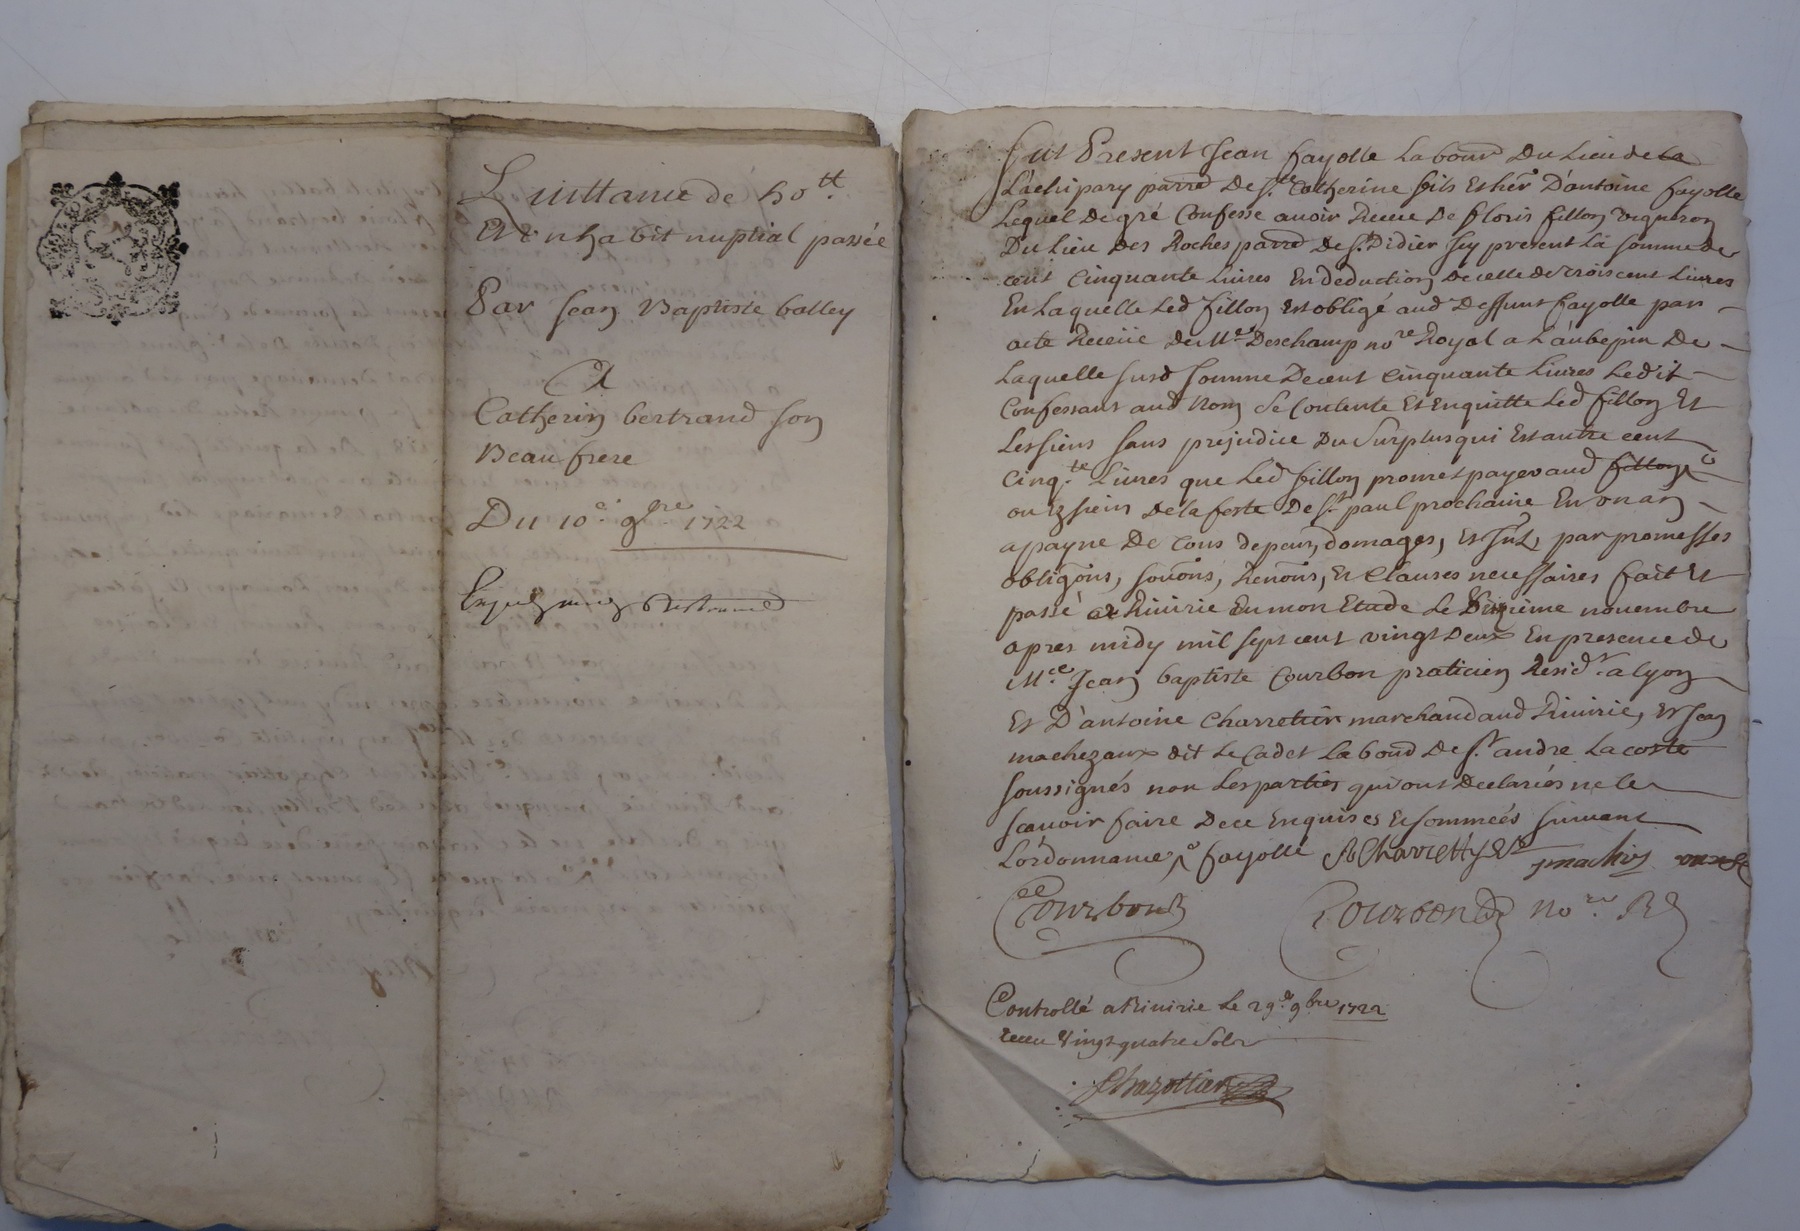 Quittance de 50tt
Et d'un habit nuptial passée
Par Jean Baptiste balley
A
Catherin bertrand son
Beau frere
Du 10e 9bre 1722
Fut Present Jean fayolle Labour Du Lieu de la
Lachipary parr De Ste Catherine fils Et her D'antoine fayolle
Lequel De gré Confesse avoir Receu De floris fillon vigneron
Du Lieu Des Roches parr De St Didier Icy present La somme de
cent Cinquante Livres En deduction De celle de trois cent Livres
En Laquelle Led fillon Est obligé aud Deffunt fayolle par
acte Receüe de Me Deschamp nore Royal a Laubepin De
Laquelle susd somme De cent Cinquante Livres Ledit
Confessant aud Nom se Contente Et Enquitte Led fillon Et
Les siens sans prejudice Du Surplus qui Est autre cent
Cinqte Livres que Led fillon promet payer aud fillon
ou Es siens De la feste De St paul prochaine En un an
a payne De tous depens, domages, et Int, par promesses
obligons, soumons, Renons, Et Clauses necessaires fait Et
passé a Riuirie En mon Etude Le Dixieme novembre
apres midy mil sept cent vingt Deux En presence de
Me Jean baptiste Courbon praticien Resid a lyon
Et D'antoine Charretier marchand aud Riuirie, Et Jean
machezaux dit Le Cadet Labour De St andre La coste
soussignés non Les parties qui ont Declariés ne le
scauoir faire De ce Enquises Et sommées suivant
Lordonnance, fayolle
Courbon Courbon nore R
Controllé a Riuirie Le 29e 9bre 1722
receu Vingt quatre Sols
Chazottier